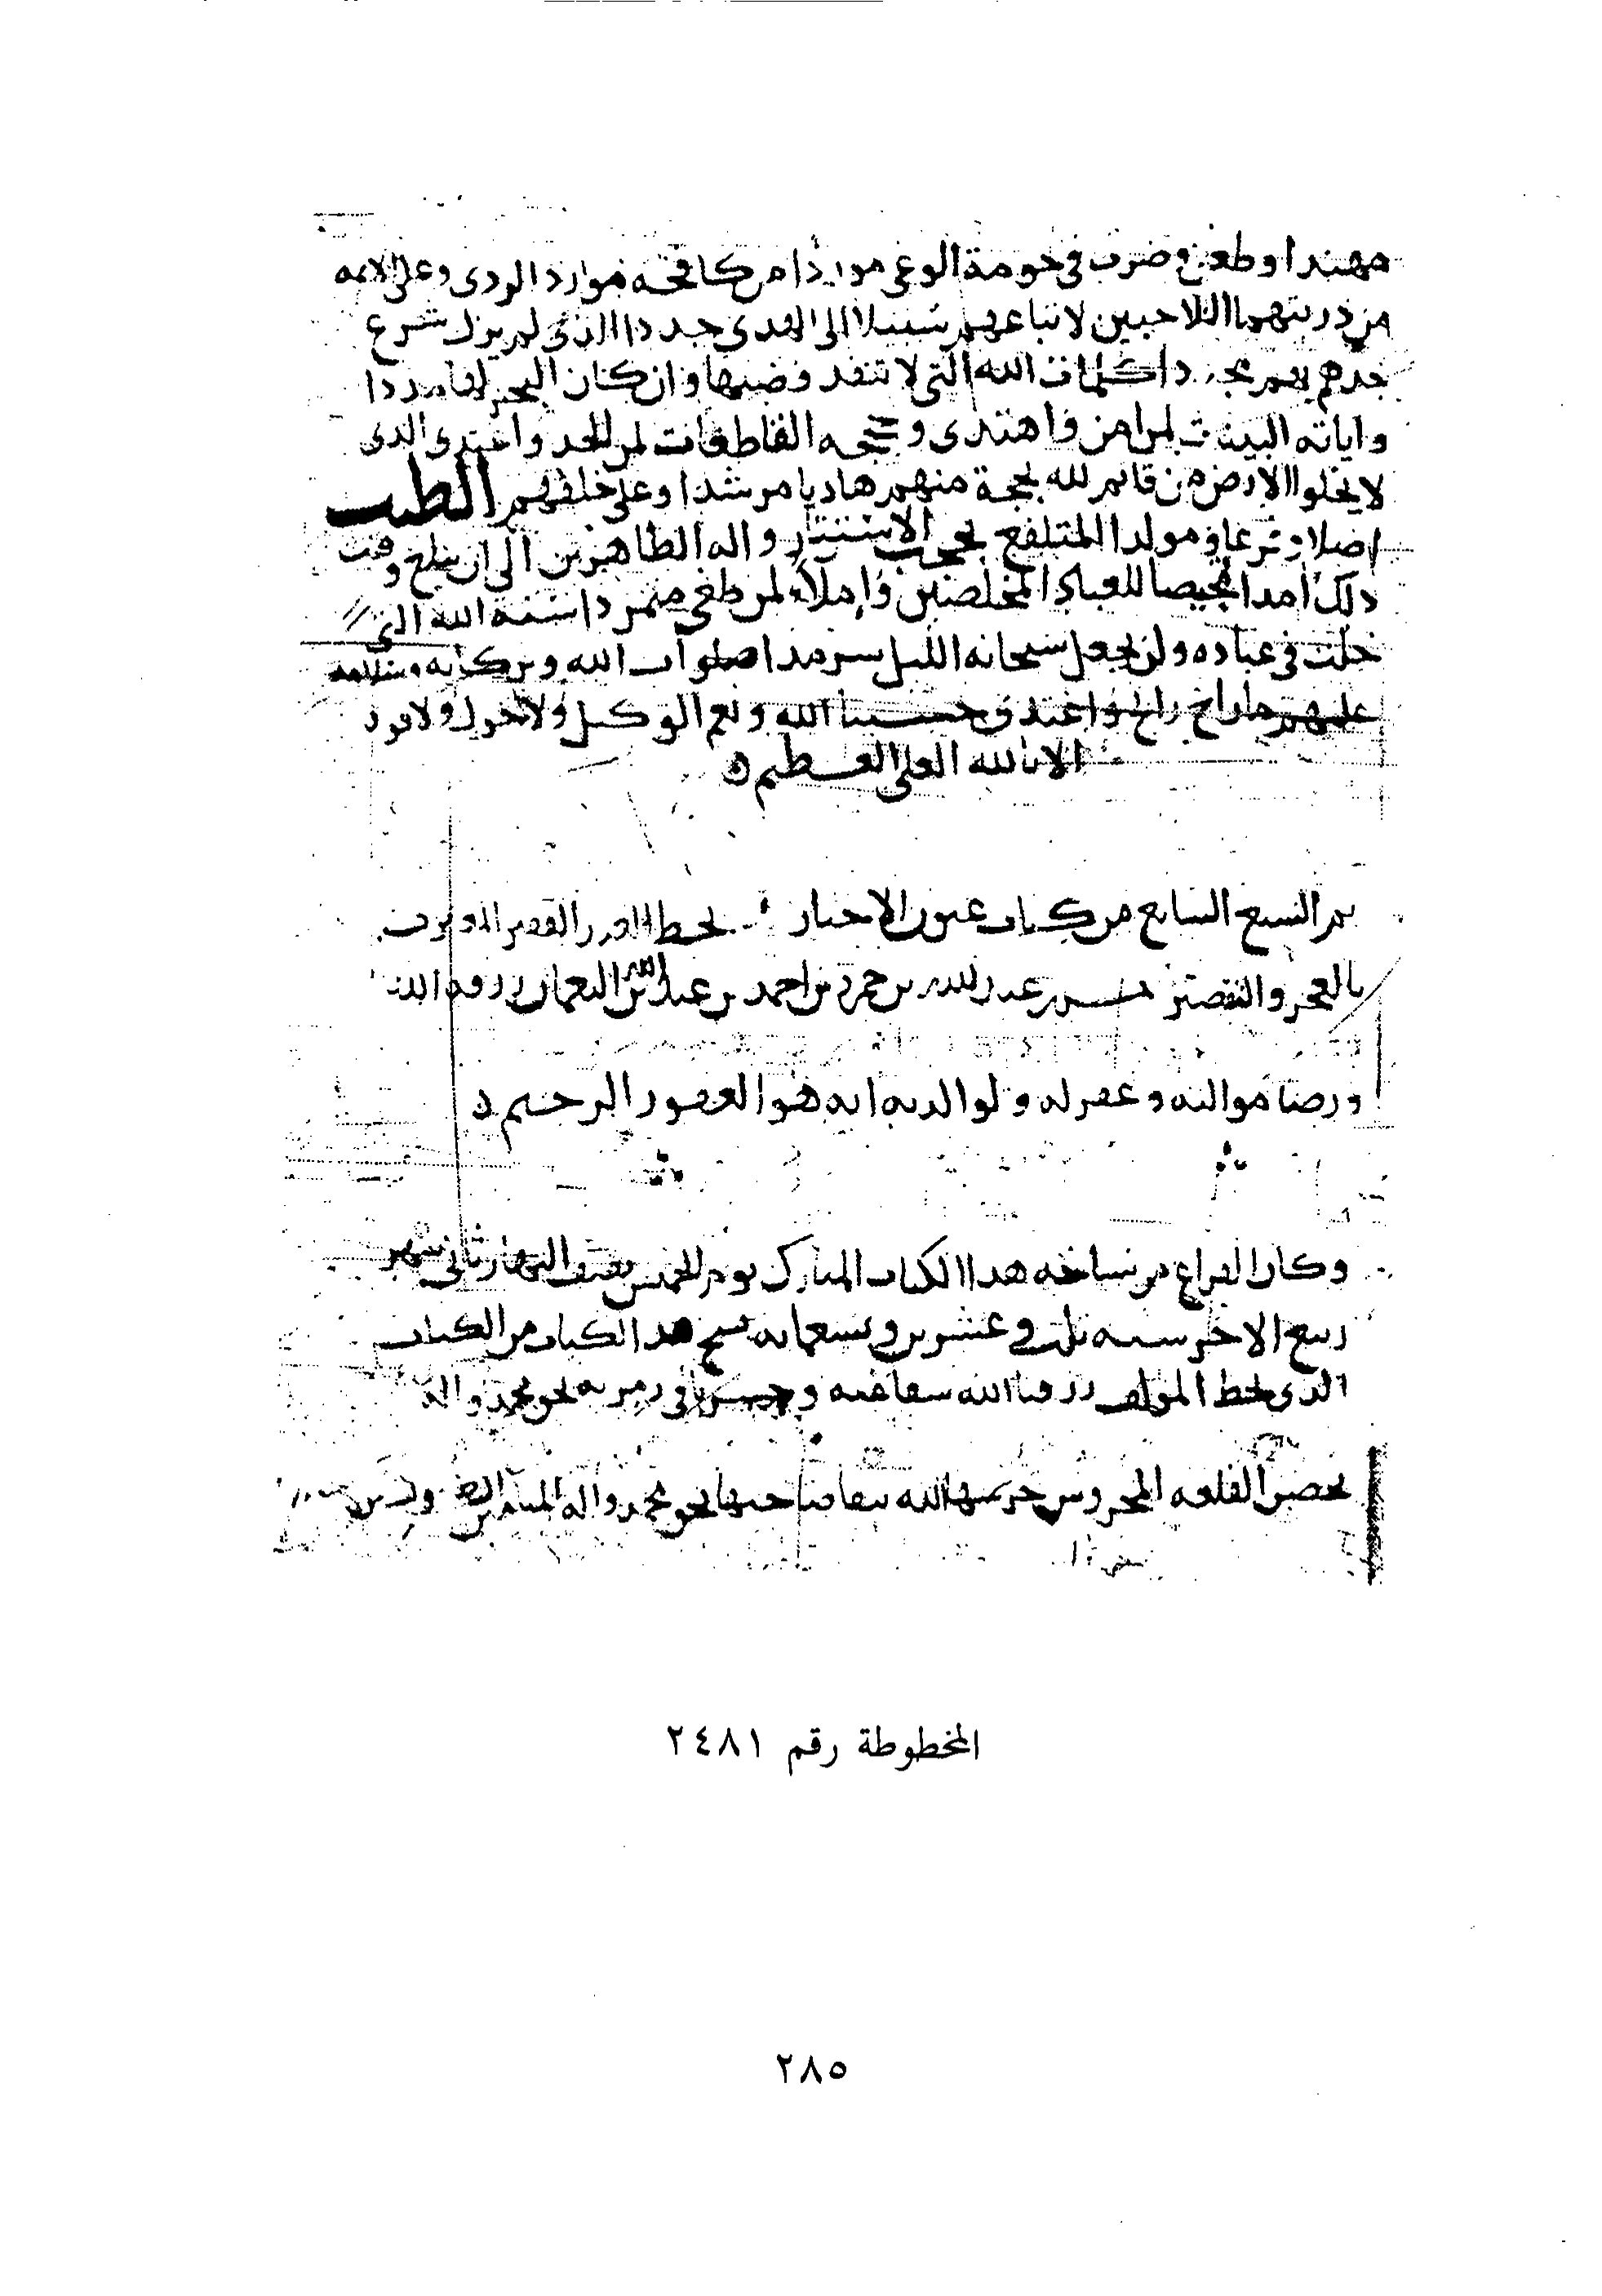 مهندا وطعن وضرب في حومة الوغى مواردا من كافحه موارد الردى وعلى الائمه
من ذريتهما اللاحبين لاتباعهم سبيلا الى الهدى جددا الذي لم يزل شرع
جدهم بهم مجددا كلمات الله التي لا تنفد وصيها وان كان البحر لها مددا
واياته البينات لمن امن واهتدى وحججه القاطعات لمن الحد واعتدى الذى
لا يخلوا الارض من قائم لله بحجة منهم هاديا مرشدا وعلى خلفهم الطيب
اصلا وفرعا ومولدا المتلفع بحجب الاستتار واله الطاهرين الى ان يبلغ وقت
ذلك امدا تمحيصا للعباد المخلصين واملاء لمن طغى متمردا سنة الله التي
خلت في عباده ولن يجعل سبحانه الليل سرمدا صلوات الله وبركاته وسلامه
عليهم ما راح رايح واغتدى حسبنا الله ونعم الوكيل ولا حول ولا قوه
الا بالله العلي العظيم
تم السبع السابع من كتاب عيون الاخبار بخط العبد الفقير المعترف
بالعجز والتقصير عبد الله بن حمزه بن احمد بن عبد الله بن النعمان رزقه الله
ورضا مواليه وغفر له ولوالديه انه هو الغفور الرحيم
وكان الفراغ من نساخه هذا الكتاب المبارك يوم الخميس نصف النهار ثاني شهر
ربيع الاخر سنه ثلث وعشرين وتسعمايه نسخ هذا الكتاب من الكتاب
الذي بخط المولف رزقنا الله شفاعته وحشرنا في زمرته بحق محمد واله
بحصن القلعه المحروس حرسها الله ببقا صاحبها بحق محمد واله
المخطوطة رقم ٢٤٨١
٢٨٥